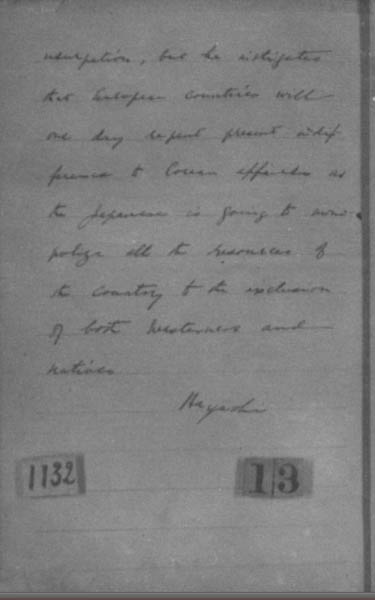 usurpation, but he instigates
that European countries will
one day repent present indif
ference to Corean affairs as
the Japanese is going to mono
polize all the resources of
the country to the exclusion
of both Westerners and
natives
Hayashi
1132
13